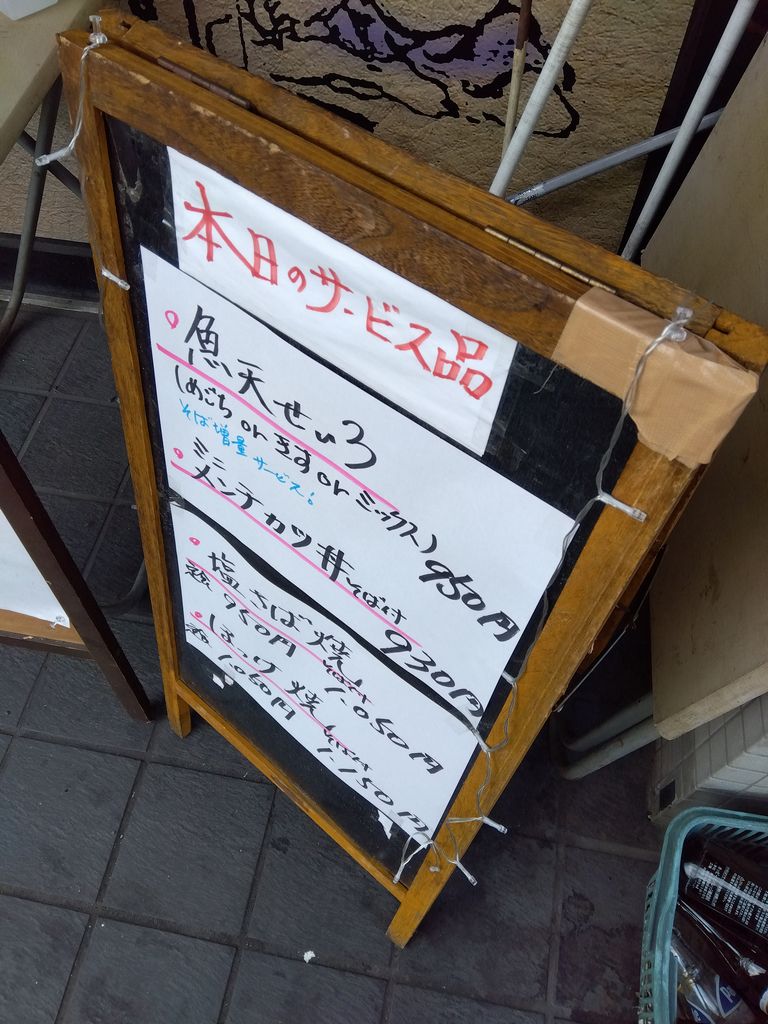 本日のサービス品
魚天せいろ
(めごち or きす or ミックス) 950円
そば増量サービス!
ミニ
メンチカツ丼 そば付 930円
塩さば焼 そば付 1.050円
960円
ほっけ焼 そば付 1.150円
1.060円